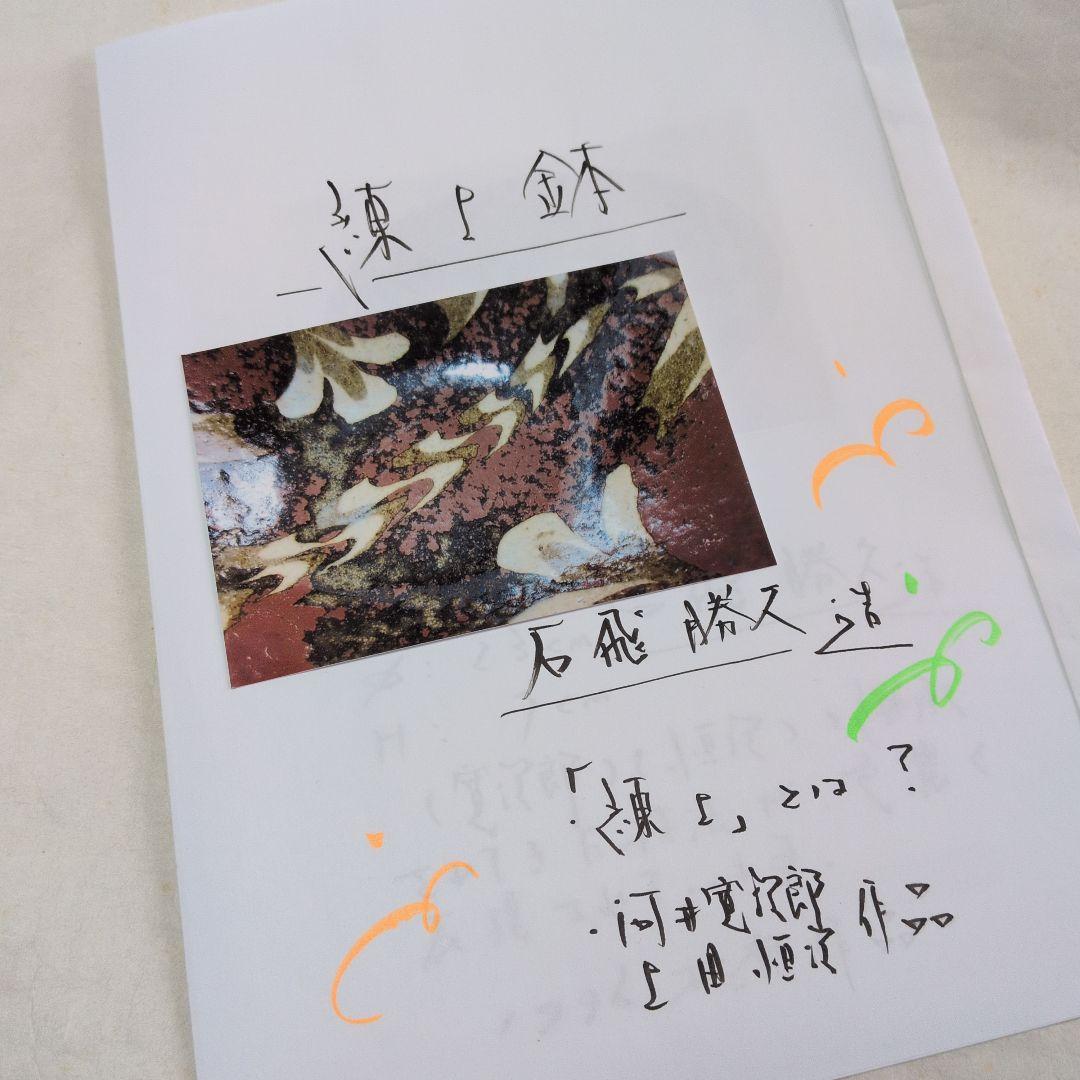 練上鉢
石飛勝久造
「練上」とは?
・河井寛次郎
上田恒次 作品